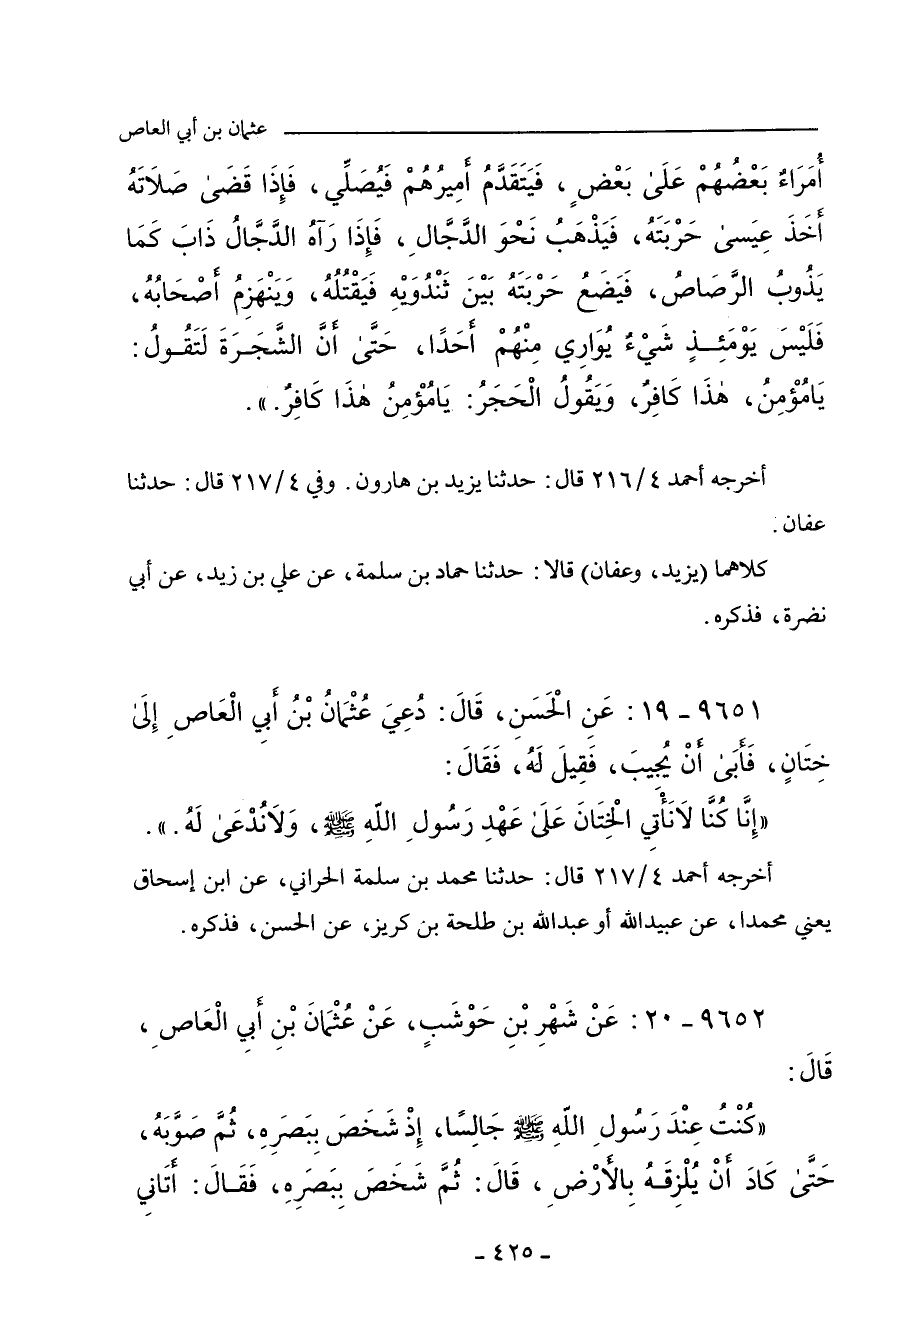 عثمان بن أبي العاص
أُمَرَاءُ بَعْضُهُمْ عَلَىٰ بَعْضٍ ، فَيَتَقَدَّمُ أَمِيرُهُمْ فَيُصَلِّي ، فَإِذَا قَضَىٰ صَلَاتَهُ
أَخَذَ عِيسىٰ حَرْبَتَهُ، فَيَذْهَبُ نَحْوَ الدَّجَّالِ ، فَإِذَا رَآهُ الدَّجَّالُ ذَابَ كَمَا
يَذُوبُ الرَّصَاصُ، فَيَضَعُ حَرْبَتَهُ بَيْنَ ثَنْدُوَيْهِ فَيَقْتُلُهُ، وَيَنْهَزِمُ أَصْحَابُهُ،
فَلَيْسَ يَوْمَئِـذٍ شَيْءٌ يُوَارِي مِنْهُمْ أَحَدًا، حَتَّىٰ أَنَّ الشَّجَـرَةَ لَتَقُـولُ:
يَامُؤْمِنُ، هٰذَا كَافِرٌ، وَيَقُولُ الْحَجَرُ: يَامُؤْمِنُ هٰذَا كَافِرٌ. ».
أخرجه أحمد ٤/ ٢١٦ قال: حدثنا يزيد بن هارون. وفي ٤/ ٢١٧ قال: حدثنا
عفان.
كلاهما (يزيد، وعفان) قالا: حدثنا حماد بن سلمة، عن علي بن زيد، عن أبي
نضرة، فذكره.
٩٦٥١ - ١٩: عَنِ الْحَسَنِ، قَالَ: دُعِيَ عُثْمَانُ بْنُ أَبِي الْعَاصِ إِلَىٰ
خِتَانٍ، فَأَبَىٰ أَنْ يُجِيبَ، فَقِيلَ لَهُ، فَقَالَ:
«إِنَّا كُنَّا لَانَأْتِي الْخِتَانَ عَلَىٰ عَهْدِ رَسُولِ اللّهِ ﷺ، وَلَانُدْعَىٰ لَهُ. ».
أخرجه أحمد ٤/ ٢١٧ قال: حدثنا محمد بن سلمة الحراني، عن ابن إسحاق
يعني محمدا، عن عبيدالله أو عبدالله بن طلحة بن كريز، عن الحسن، فذكره.
٩٦٥٢ - ٢٠: عَنْ شَهْرِ بْنِ حَوْشَبٍ، عَنْ عُثْمَانَ بْنِ أَبِي الْعَاصِ ،
قَالَ:
«كُنْتُ عِنْدَ رَسُولِ اللّهِ ﷺ جَالِسًا، إِذْ شَخَصَ بِبَصَرِهِ، ثُمَّ صَوَّبَهُ،
حَتَّىٰ كَادَ أَنْ يُلْزِقَـهُ بِالأَرْضِ ، قَالَ: ثُمَّ شَخَصَ بِبَصَرِهِ، فَقَـالَ: أَتَانِي
- ٤٢٥ -